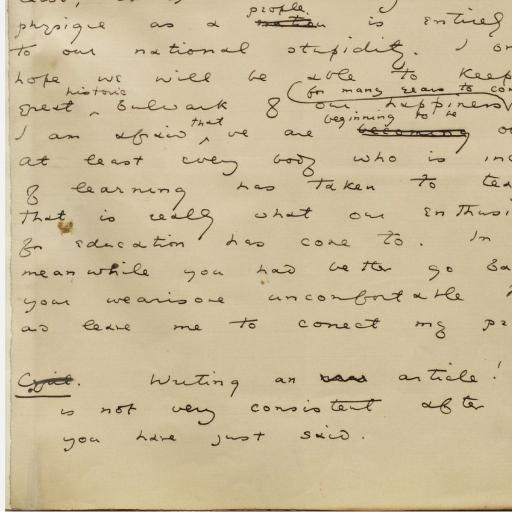 people
physique as a nation is entirely
to our national stupidity. I on
hope we will be able to keep
for many years to com
historic
great bulwark of our happiness
that beginning to be
I am afraid we are becoming ov
at least every body who is inc
of learning has taken to tea
that is really what our enthusi
for education has come to. In
meanwhile you had better go ba
your wearisome uncomfortable
and leave me to correct my pr
Cyril. Writing an article!
is not very consistent after
you have just said.